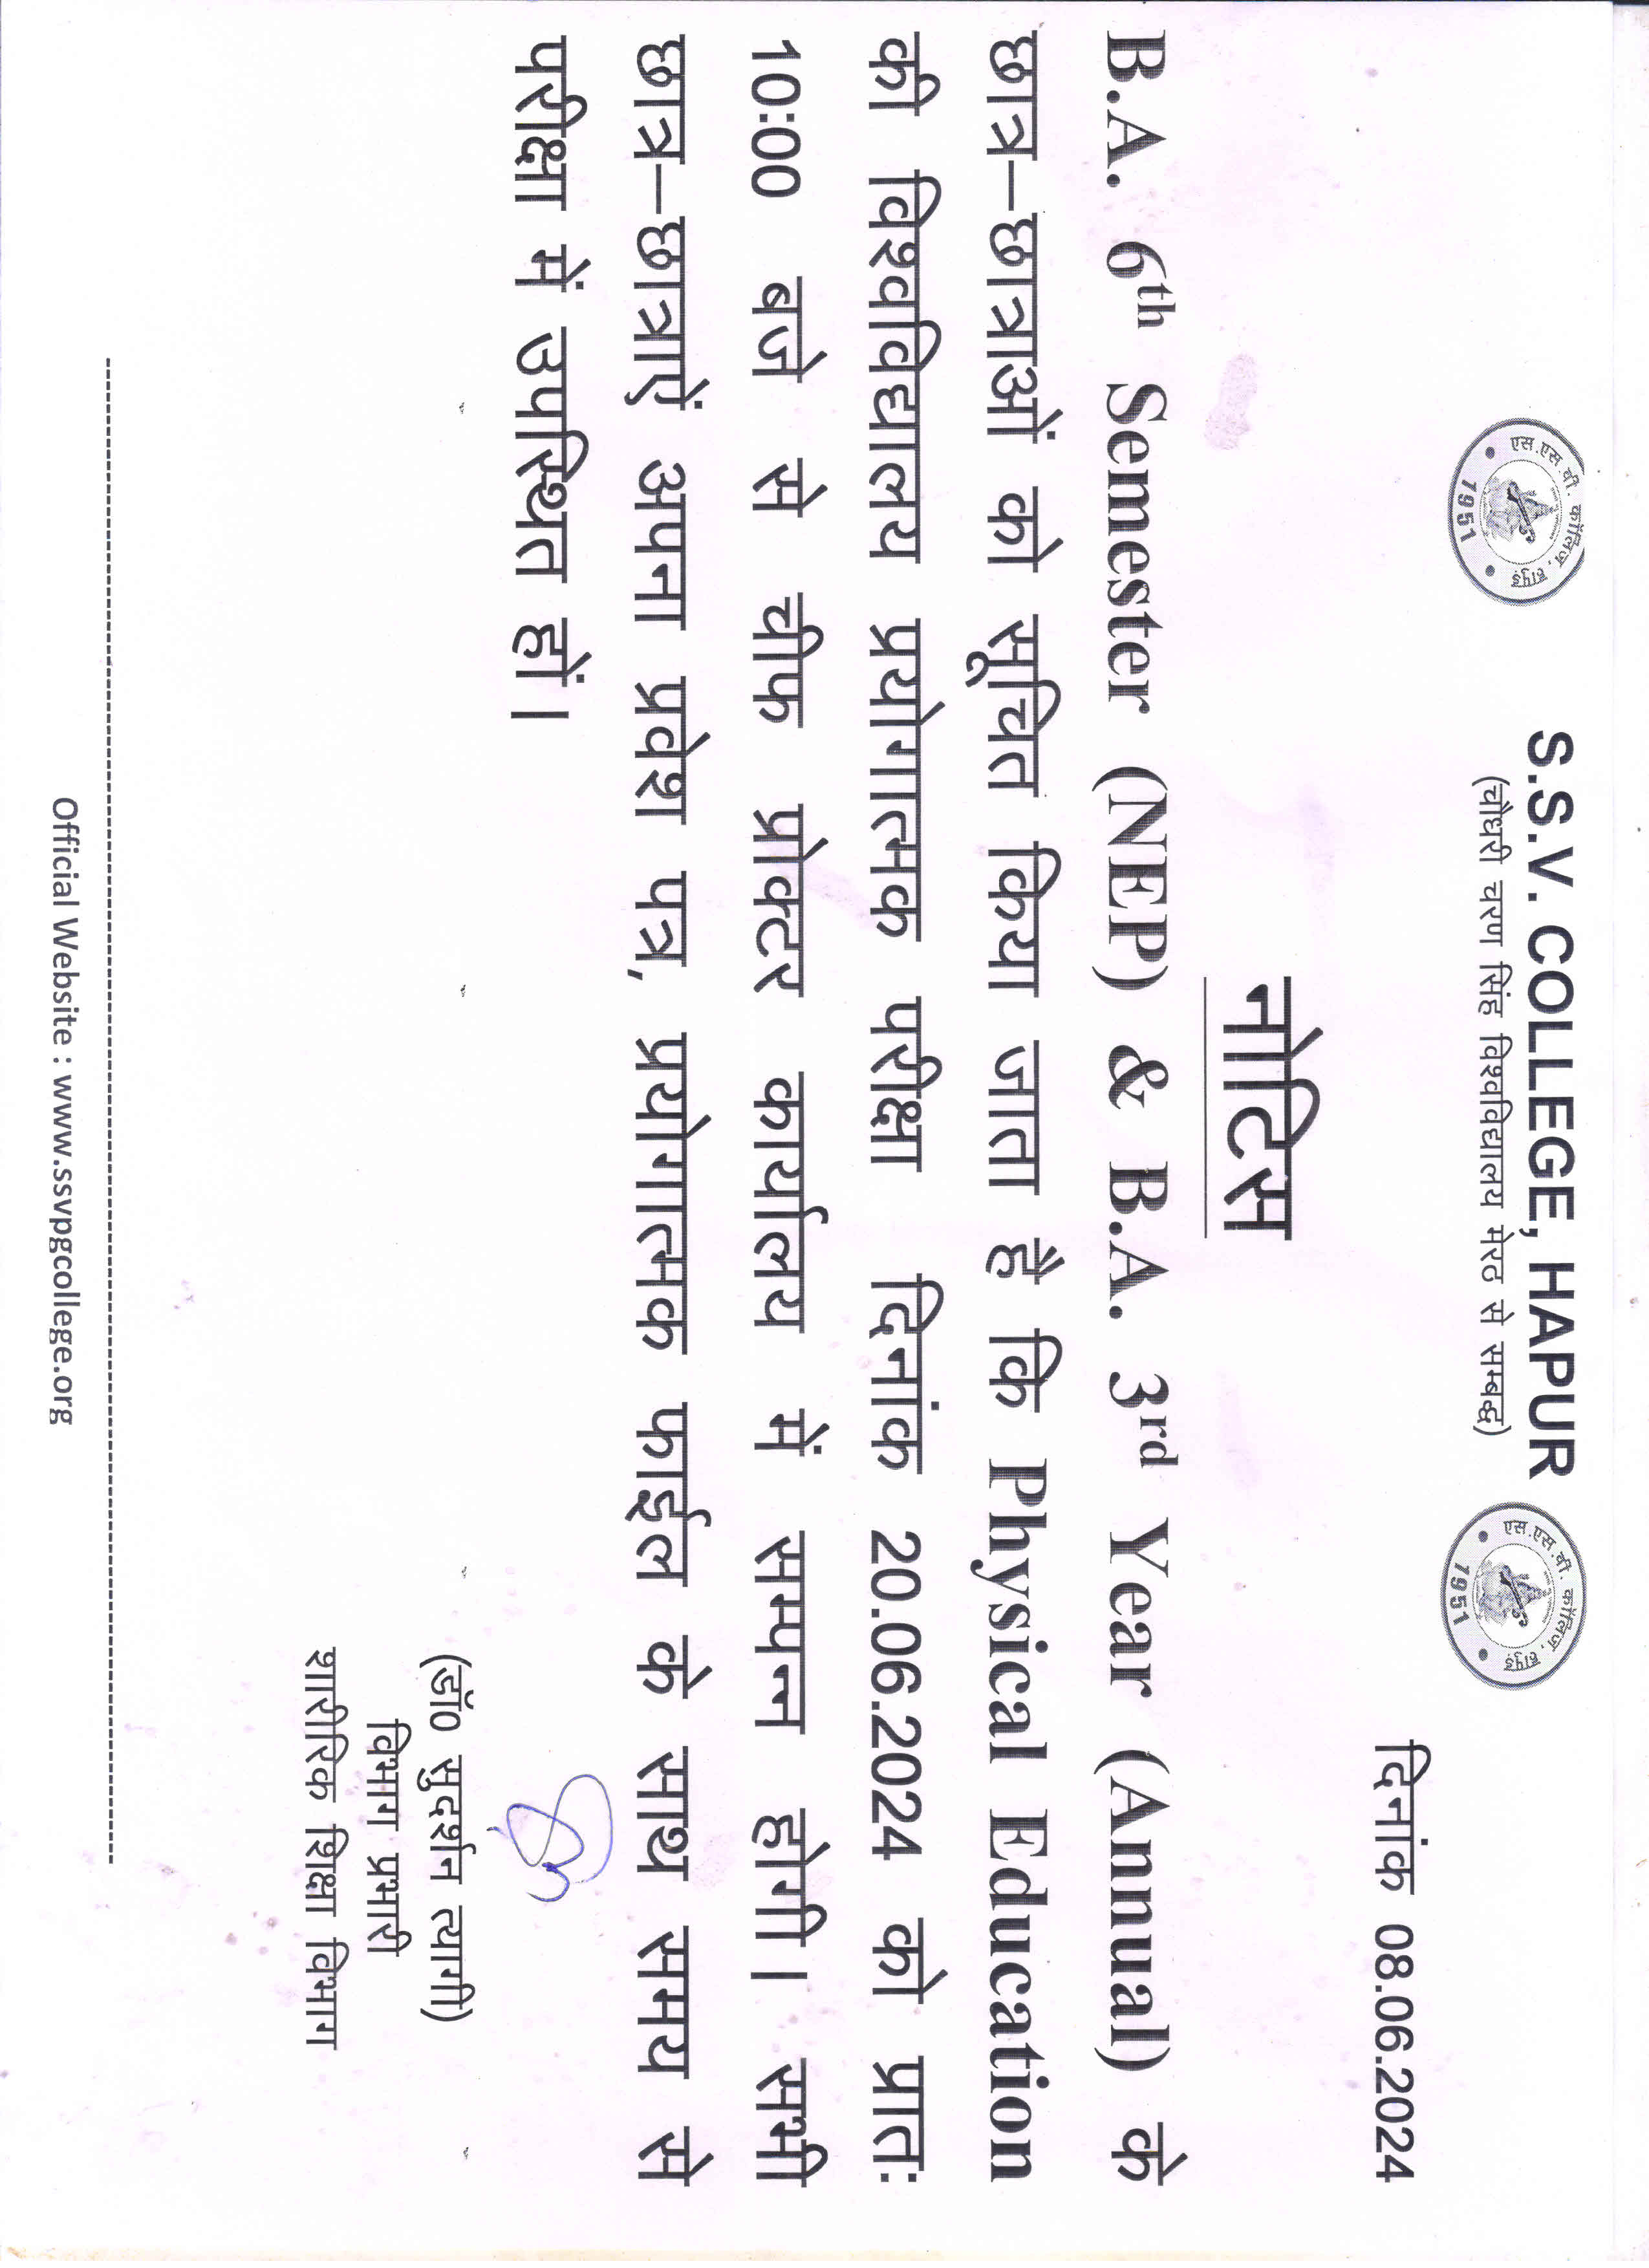 S.S.V. COLLEGE, HAPUR
(चौधरी चरण सिंह विश्वविद्यालय मेरठ से सम्बद्ध)
एस.एस.वी. कॉलिज, हापुड़
1951
एस.एस.वी. कॉलिज, हापुड़
1951
दिनांक 08.06.2024
नोटिस
B.A. 6th Semester (NEP) & B.A. 3rd Year (Annual) के
छात्र–छात्राओं को सूचित किया जाता है कि Physical Education
की विश्वविद्यालय प्रयोगात्मक परीक्षा दिनांक 20.06.2024 को प्रातः
10:00 बजे से चीफ प्रोक्टर कार्यालय में सम्पन्न होगी। सभी
छात्र–छात्राऐं अपना प्रवेश पत्र, प्रयोगात्मक फाईल के साथ समय से
परीक्षा में उपस्थित हों।
(डॉ0 सुदर्शन त्यागी)
विभाग प्रभारी
शारीरिक शिक्षा विभाग
Official Website : www.ssvpgcollege.org